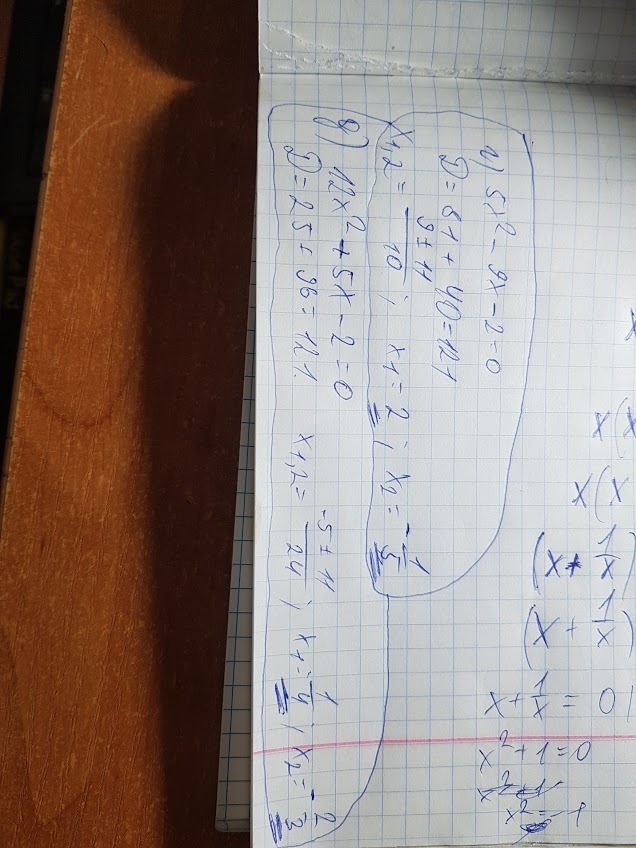 a) 5x² - 9x - 2 = 0
D = 81 + 40 = 121
x₁,₂ = (9 ± 11)/10 ; x₁ = 2 ; x₂ = -1/5
g) 12x² + 5x - 2 = 0
D = 25 + 96 = 121. x₁,₂ = (-5 ± 11)/24 ; x₁ = 1/4 ; x₂ = -2/3
x
x(x
x(x
(x + 1/x)
(x + 1/x)
x + 1/x = 0 |
x² + 1 = 0
x² = -1